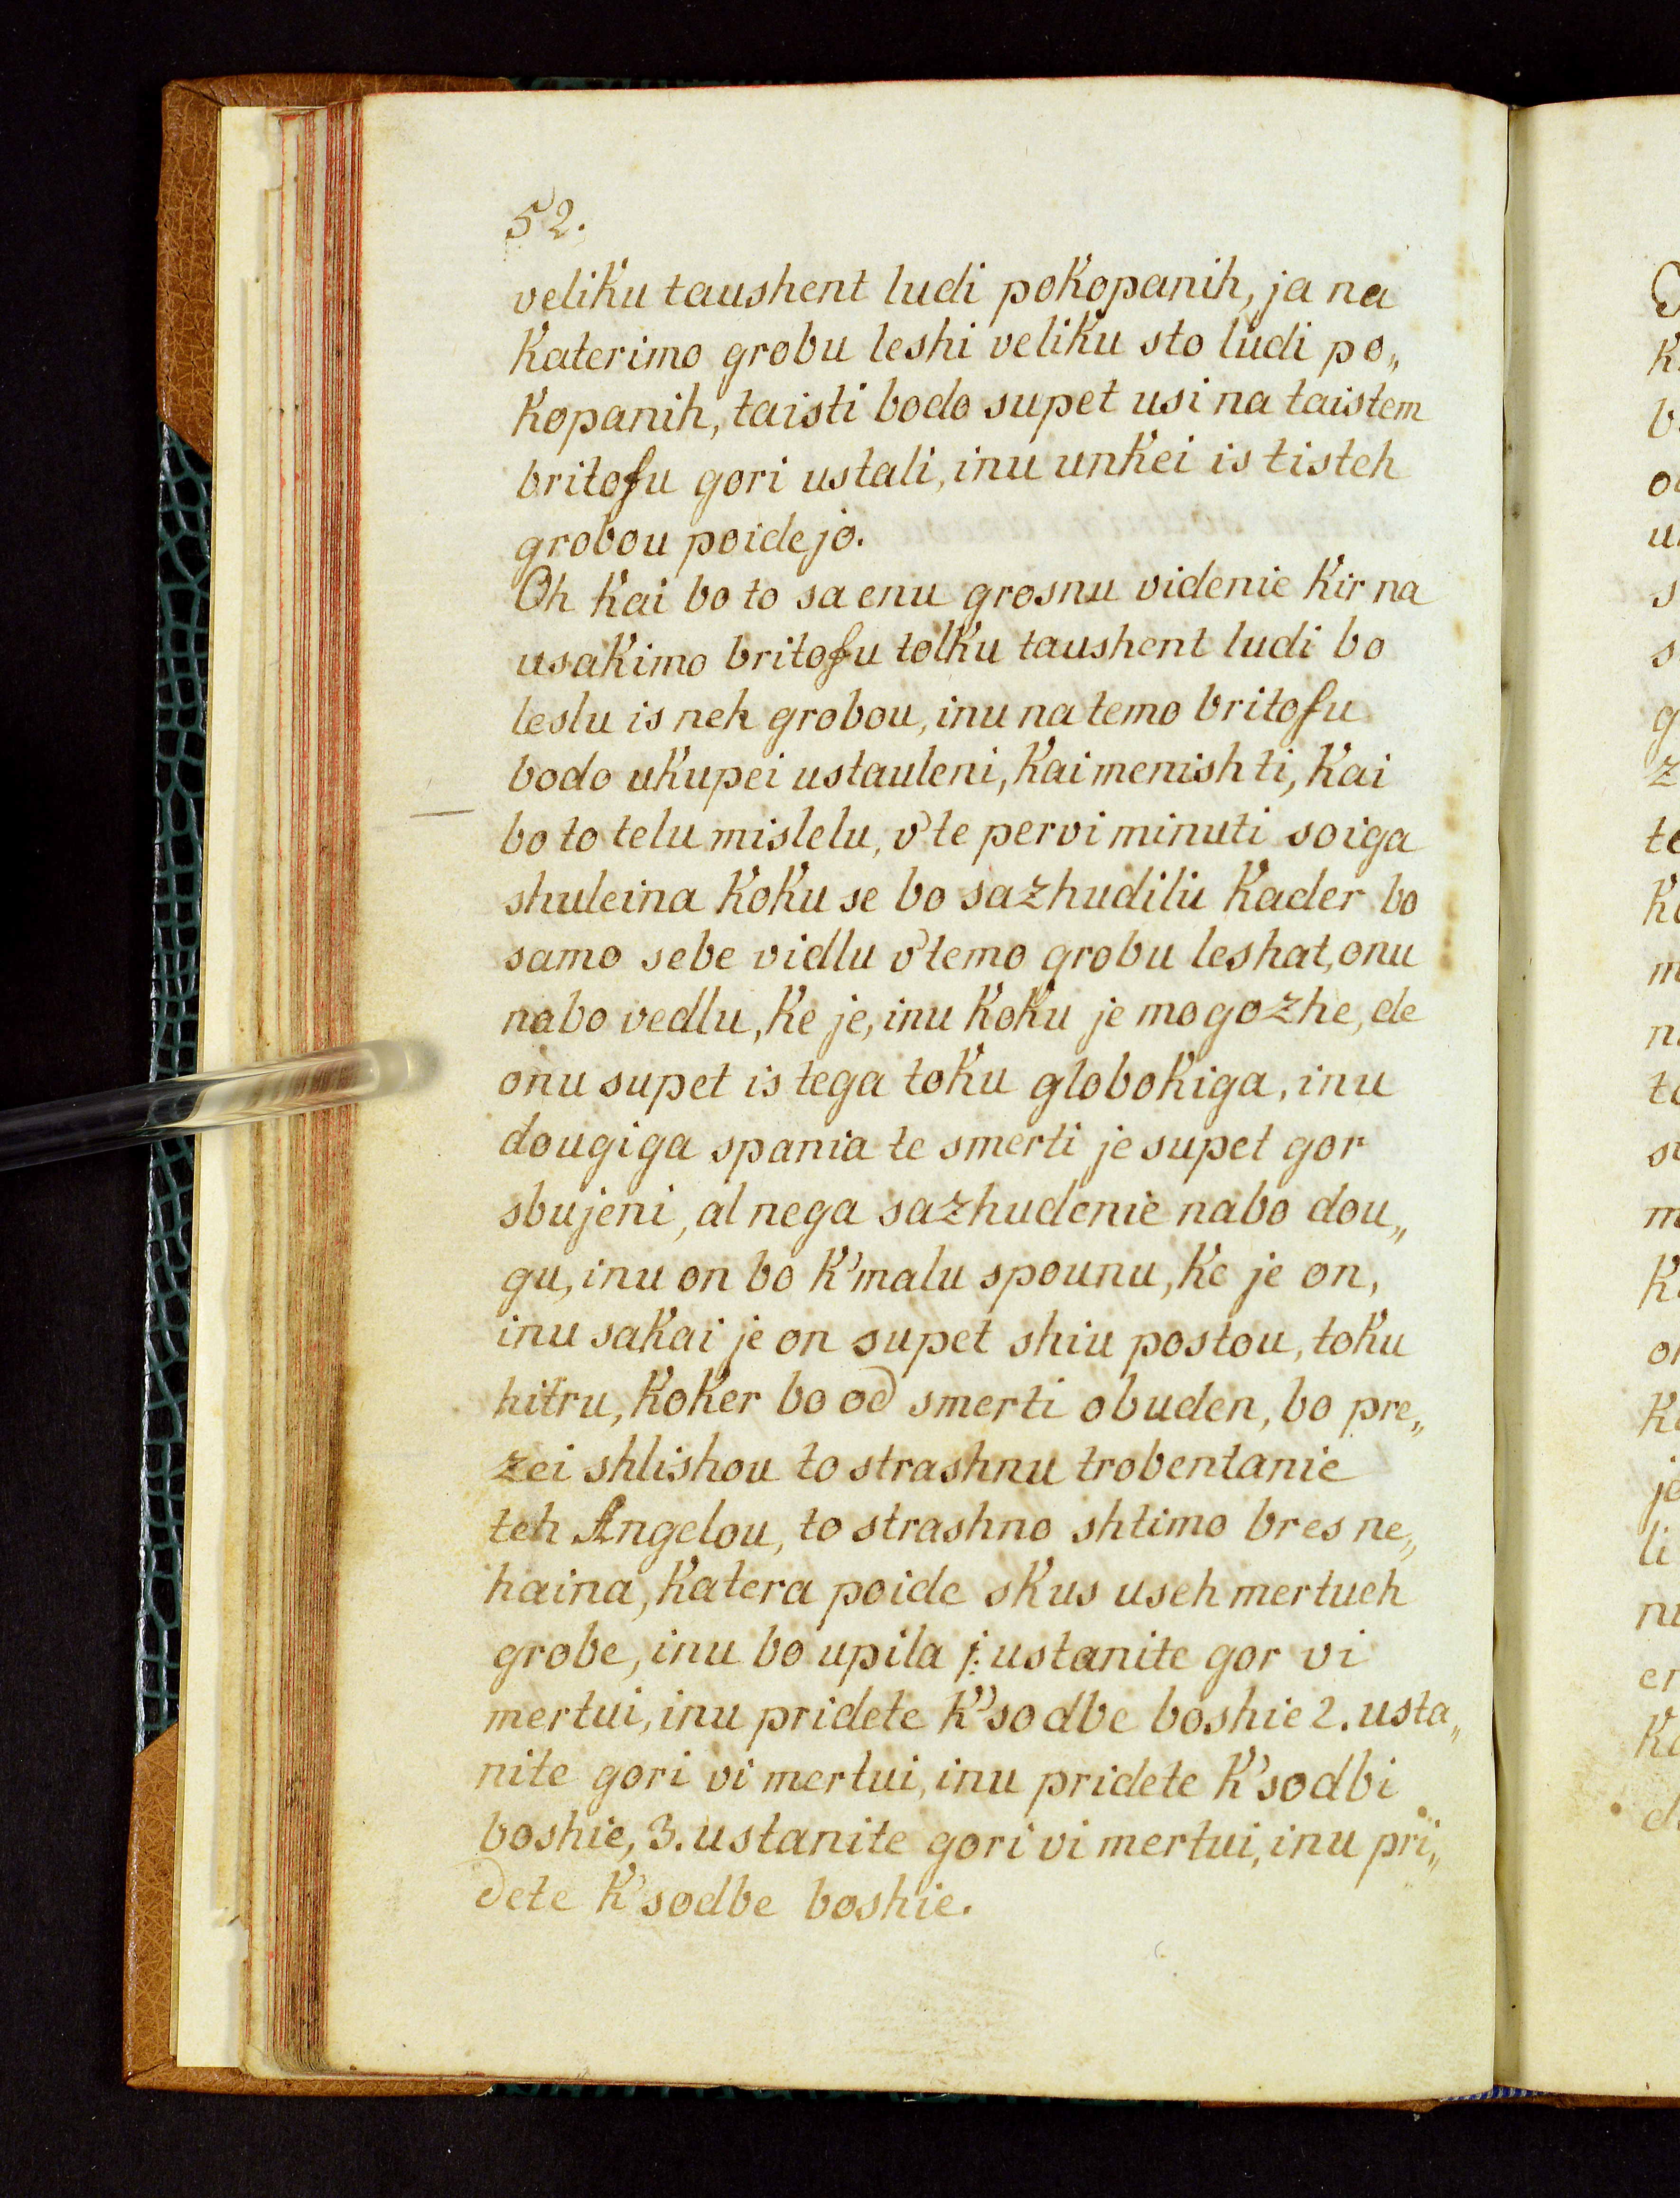 52.
veliku taushent ludi pokopanih, ja na
katerimo grobu leshi veliku sto ludi po„
kopanih, taisti bodo supet usi na taistem
britofu gori ustali, inu unkei is tisteh
grobou poidejo.
Oh kai bo to sa enu grosnu videnie kir na
usakimo britofu tolku taushent ludi bo
leslu is neh grobou, inu na temo britofu
bodo ukupei ustauleni, kai menish ti, kai
bo to telu mislelu, v'te pervi minuti soiga
shuleina koku se bo sazhudilu kader bo
samo sebe vidlu v'temo grobu leshat, onu
nabo vedlu, ke je, inu koku je mogozhe, de
onu supet is tega toku globokiga, inu
dougiga spania te smerti je supet gor
sbujeni, al nega sazhudenie nabo dou„
gu, inu on bo k'malu spounu, ke je on,
inu sakai je on supet shiu postou, toku
hitru, koker bo od smerti obuden, bo pre„
zei shlishou to strashnu trobentanie
teh Angelou, to strashno shtimo bres ne„
haina, katera poide skus useh mertueh
grobe, inu bo upila j: ustanite gor vi
mertui, inu pridete k'sodbe boshie 2. usta„
nite gori vi mertui, inu pridete k'sodbi
boshie, 3. ustanite gori vi mertui, inu pri„
dete k'sodbe boshie.